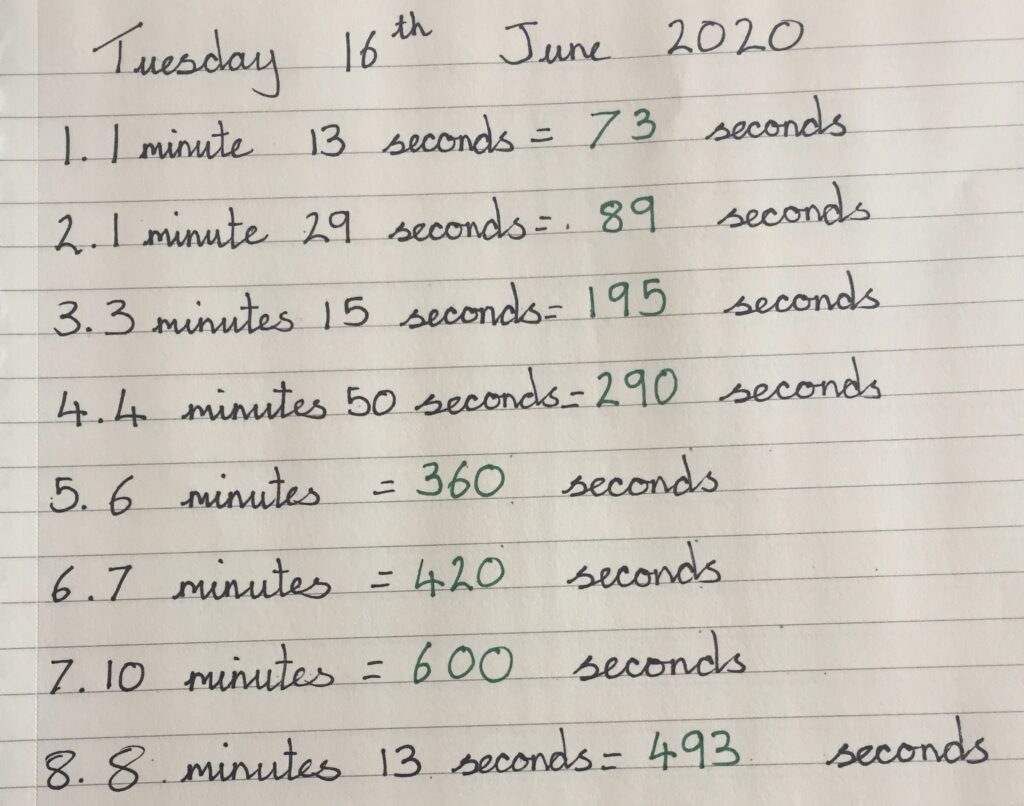 Tuesday 16th June 2020
1. 1 minute 13 seconds = 73 seconds
2. 1 minute 29 seconds = 89 seconds
3. 3 minutes 15 seconds = 195 seconds
4. 4 minutes 50 seconds = 290 seconds
5. 6 minutes = 360 seconds
6. 7 minutes = 420 seconds
7. 10 minutes = 600 seconds
8. 8 minutes 13 seconds = 493 seconds